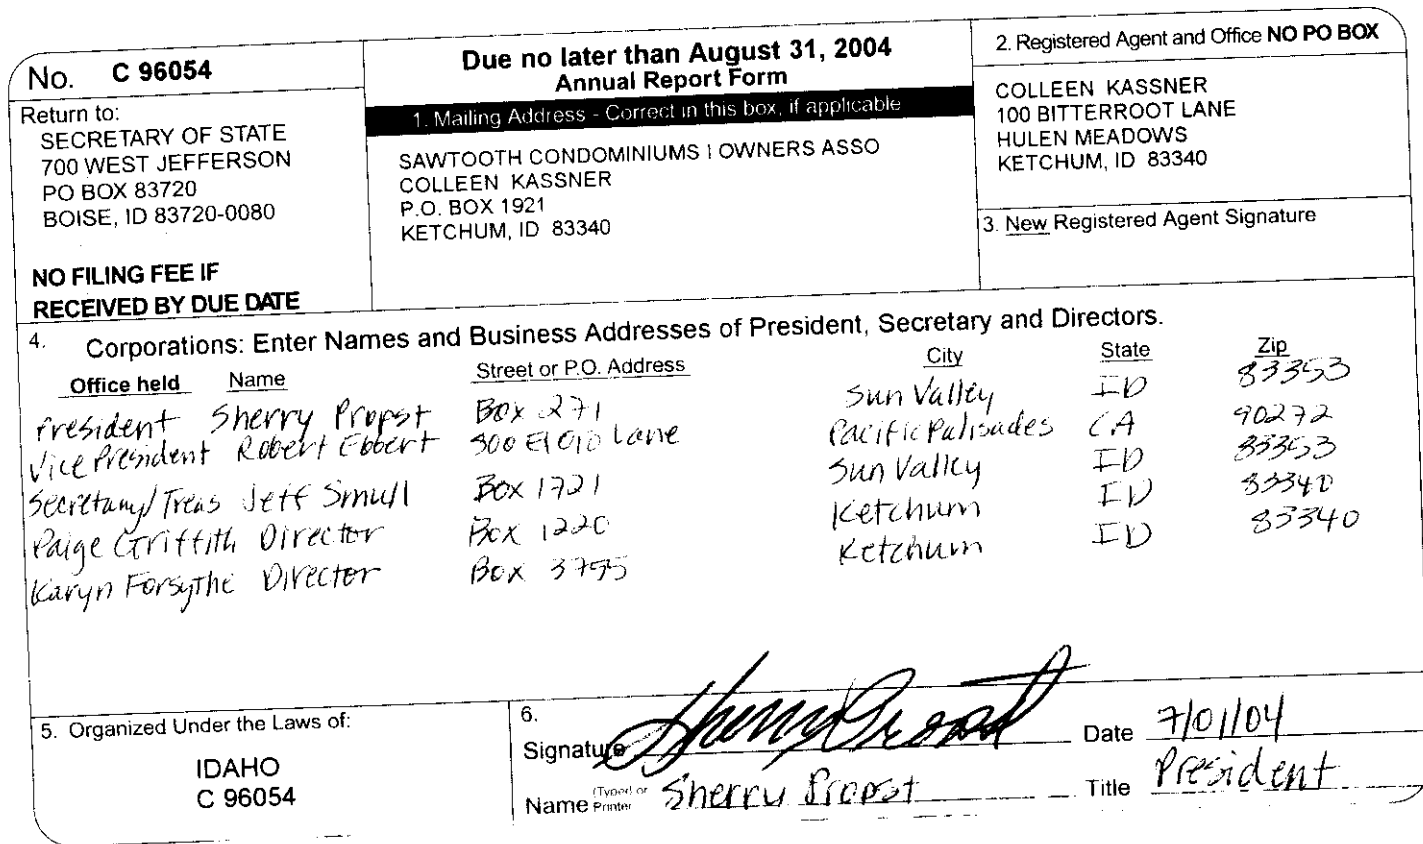 No. C 96054
Return to:
SECRETARY OF STATE
700 WEST JEFFERSON
PO BOX 83720
BOISE, ID 83720-0080
NO FILING FEE IF
RECEIVED BY DUE DATE
Due no later than August 31, 2004
Annual Report Form
1. Mailing Address - Correct in this box, if applicable
SAWTOOTH CONDOMINIUMS I OWNERS ASSO
COLLEEN KASSNER
P.O. BOX 1921
KETCHUM, ID 83340
2. Registered Agent and Office NO PO BOX
COLLEEN KASSNER
100 BITTERROOT LANE
HULEN MEADOWS
KETCHUM, ID 83340
3. New Registered Agent Signature
4. Corporations: Enter Names and Business Addresses of President, Secretary and Directors.
Office held Name Street or P.O. Address City State Zip
President Sherry Propst Box 271 Sun Valley ID 83353
Vice President Robert Ebbert Lane Pacific Palisades CA 90272
Secretary/Treas Jeff Smull Box 1721 Sun Valley ID 83353
Paige Griffith Director Box 1220 Ketchum ID 83340
Karyn Forsythe Director Box Ketchum ID 83340
5. Organized Under the Laws of:
IDAHO
C 96054
6.
Signature Sherry Propst Date 7/01/04
Name (Typed or Printer Sherry Propst Title President